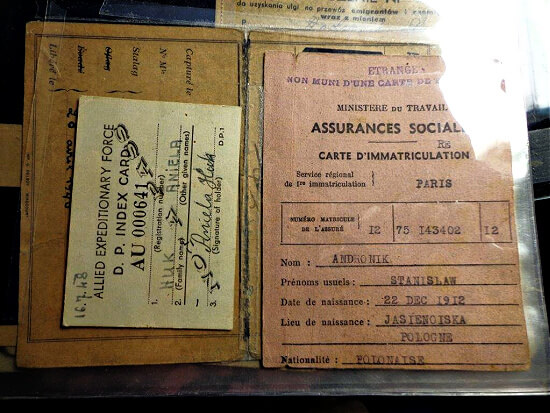 do uzyskania ulgi na przewóz emigrantów i
wraz z mieniem
Capturé le
N° Mle
Stalag
Oflag
Libéré le
16.7.48
ALLIED EXPEDITIONARY FORCE
D. P. INDEX CARD
AU 000641
1. (Registration number)
2. HUK ANIELA
(Family name) (Other given names)
3. Aniela Huk
(Signature of holder)
D.P.1
ETRANGER
NON MUNI D'UNE CARTE DE
MINISTERE DU TRAVAIL
ASSURANCES SOCIALE
RE
CARTE D'IMMATRICULATION
Service régional
de 1re immatriculation } PARIS
NUMÉRO MATRICULE
DE L'ASSURÉ 12 75 143402 12
Nom : ANDRONIK
Prénoms usuels : STANISLAW
Date de naissance : 22 DEC 1912
Lieu de naissance : JASIENOISKA
POLOGNE
Nationalité : POLONAISE